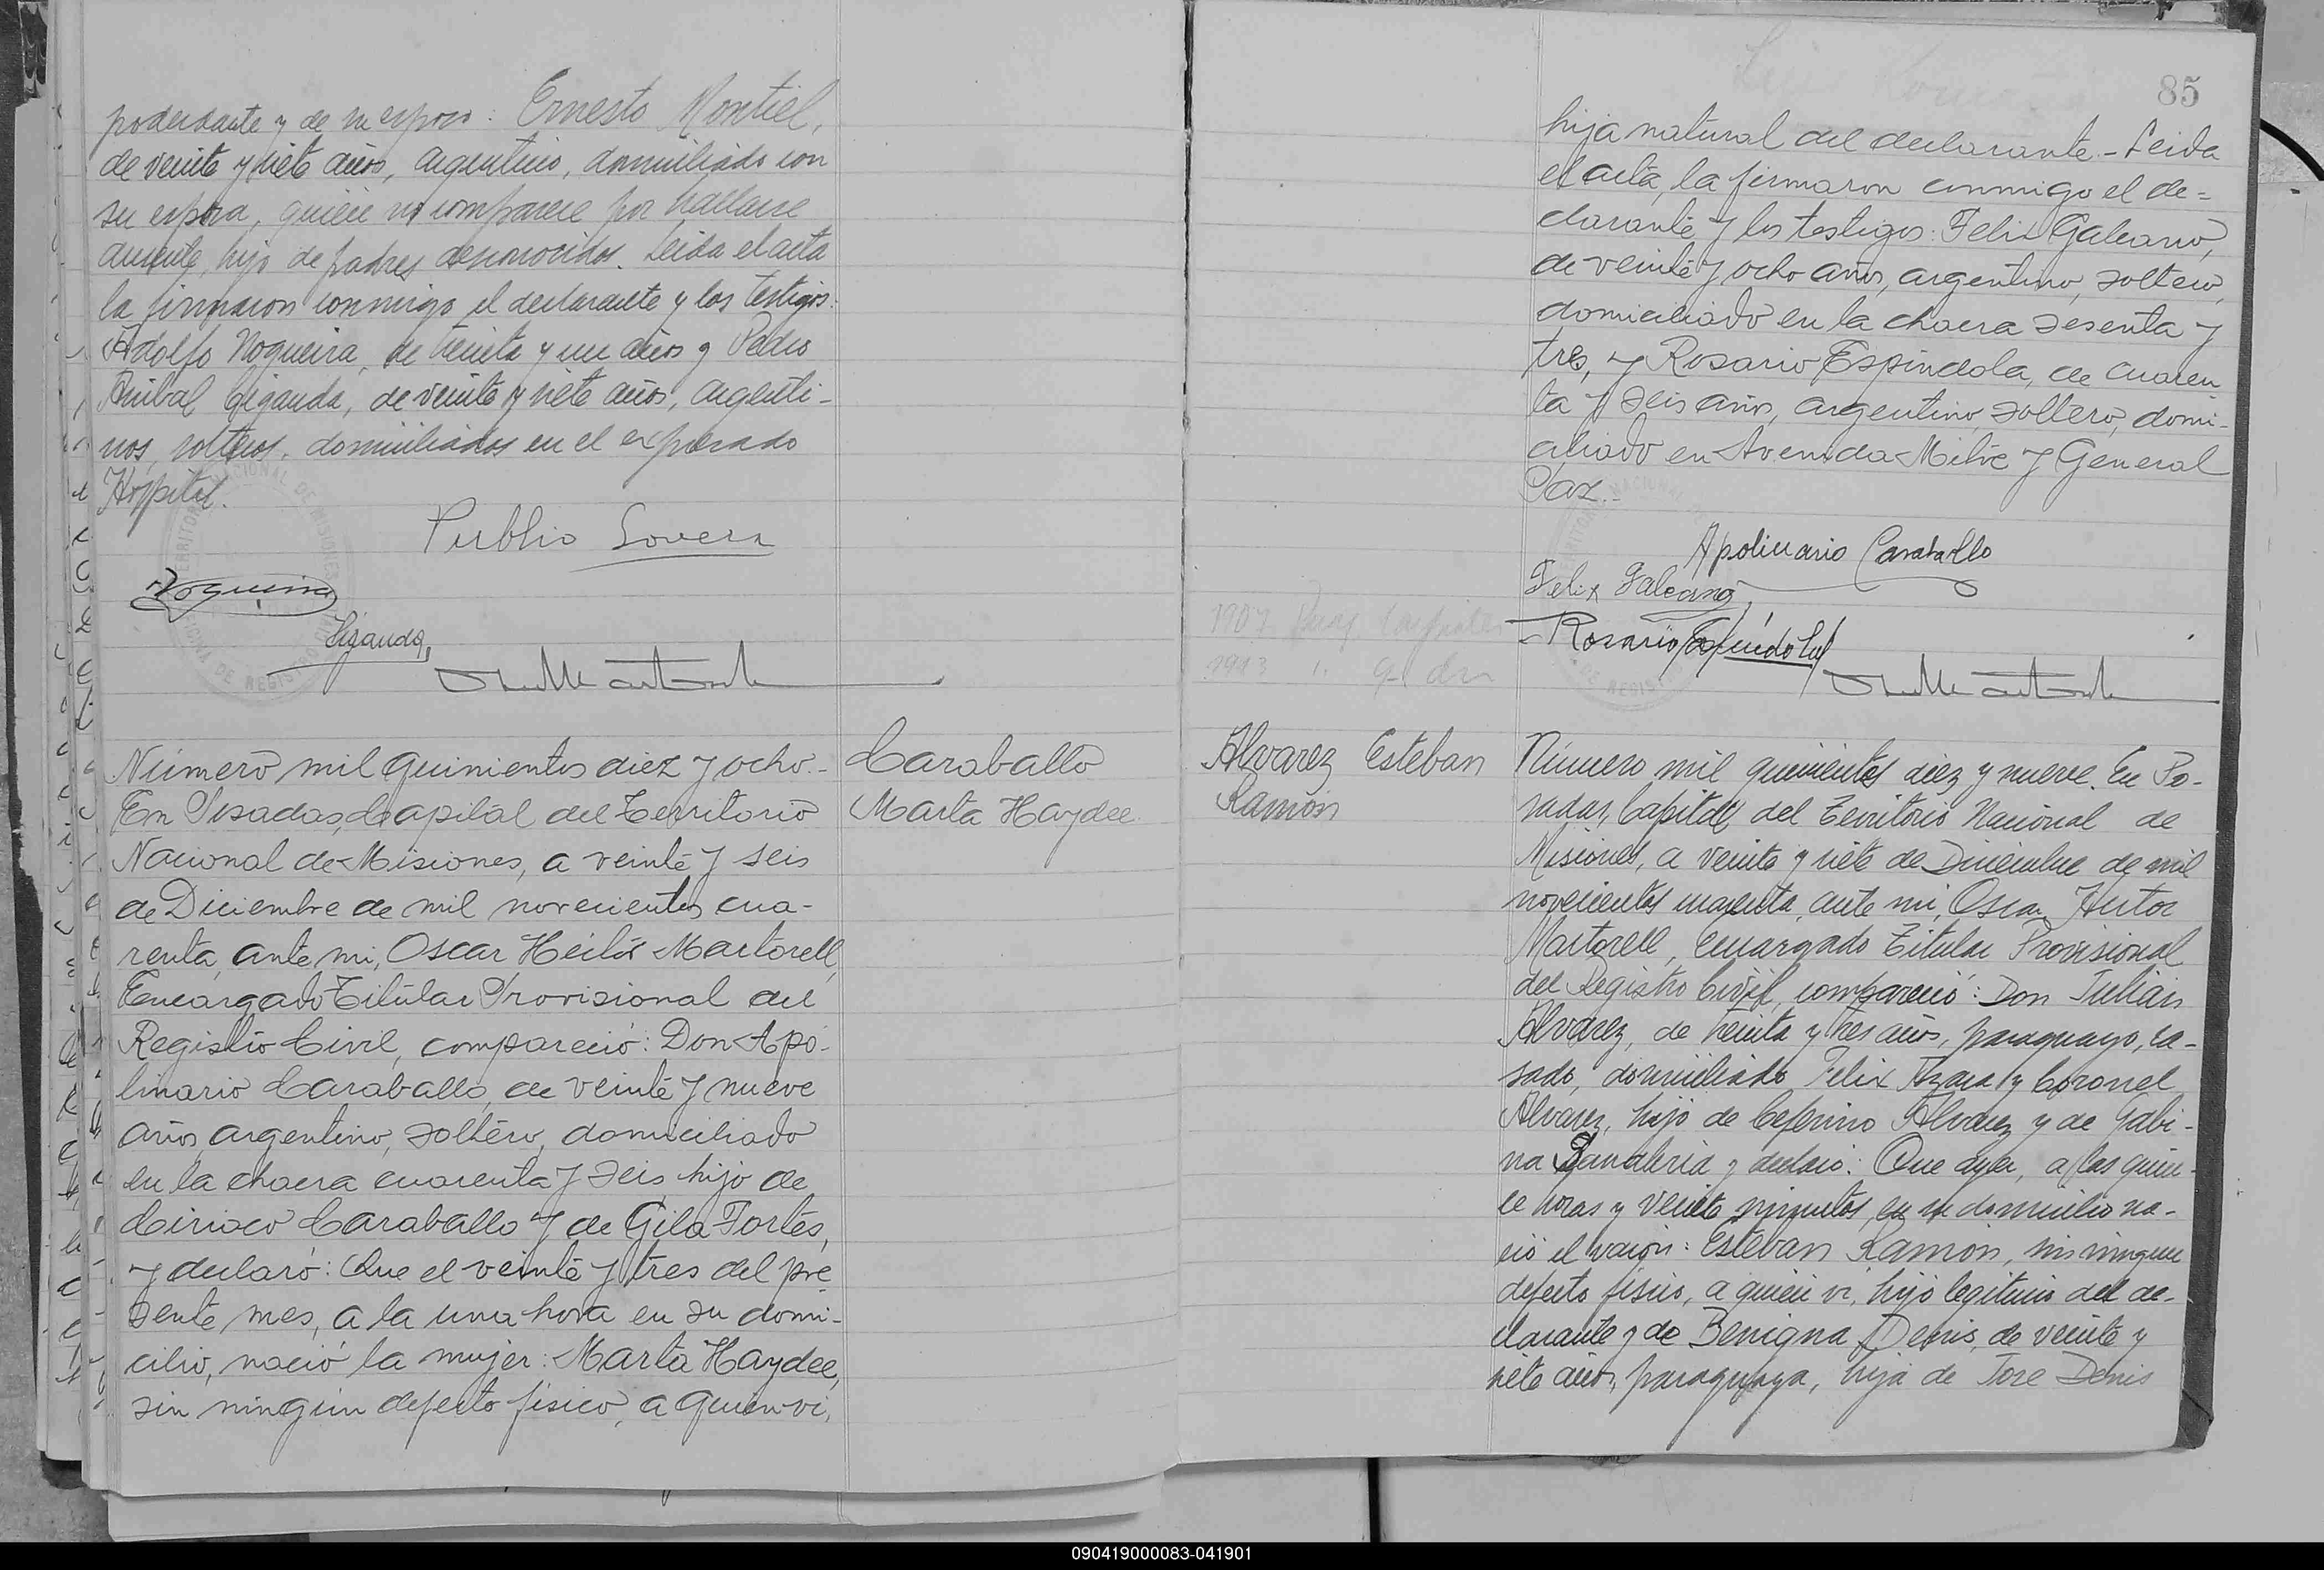 poderdante y de su esposo: Ernesto Montiel,
de veinte y siete años, argentino, domiciliado con
su esposa, quien no comparece por hallarse
ausente, hijo de padres desconocidos. Leida el acta
la firmaron conmigo el declarante y los testigos:
Adolfo Nogueira, de treinta y un años y Pedro
Anibal Giganda, de veinte y siete años, argenti-
nos, solteros, domiciliados en el expresado
Hospital.
Publio Lovera
Nogueira
Giganda
Número mil quinientos diez y ocho.-
En Posadas, Capital del Territorio
Nacional de Misiones, a veinte y seis
de Diciembre de mil novecientos cua-
renta, ante mi, Oscar Héctor Martorell,
Encargado Titular Provisional del
Registro Civil, compareció: Don Apo-
linario Caraballo, de veinte y nueve
años, argentino, soltero, domiciliado
en la chacra cuarenta y seis, hijo de
Ciriaco Caraballo y de Gila Fortes,
y declaró: Que el veinte y tres del pre
sente mes, a la una hora en su domi-
cilio, nació la mujer: Marta Haydee,
sin ningún defecto físico, a quien vi,
Caraballo
Marta Haydee
85
hija natural del declarante.- Leida
el acta, la firmaron conmigo el de=
clarante y los testigos: Felix Galeano,
de veinte y ocho años, argentino, soltero,
domiciliado en la chacra sesenta y
tres, y Rosario Espindola, de cuaren
ta y seis años, argentino, soltero, domi-
ciliado en Avenida Mitre y General
Paz.-
Apolinario Caraballo
Felix Galeano
Rosario Espindola
1907
1913
Alvarez Esteban
Ramón
Número mil quinientos diez y nueve. En Po-
sadas, Capital del Territorio Nacional de
Misiones, a veinte y siete de Diciembre de mil
novecientos cuarenta, ante mi, Oscar Hector
Martorell, Encargado Titular Provisional
del Registro Civil, compareció: Don Julián
Alvarez, de treinta y tres años, paraguayo, ca-
sado, domiciliado Felix Azara y Coronel
Alvarez, hijo de Ceferino Alvarez y de Gabi-
na Sanabria y declaró: Que ayer, a las quin-
ce horas y veinte minutos, en su domicilio na-
ció el varón: Esteban Ramon, sin ningun
defecto físico, a quien vi, hijo legitimo del de-
clarante y de Benigna Denis, de veinte y
siete años, paraguaya, hija de Jose Denis
090419000083-041901